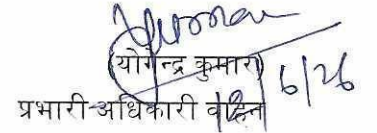 (योगेन्द्र कुमार)
प्रभारी-अधिकारी वाहन
12/6/26